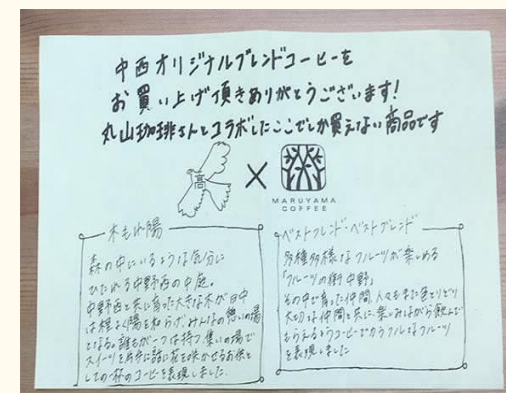 中西オリジナルブレンドコーヒーを
お買い上げ頂きありがとうございます!
丸山珈琲さんとコラボしたここでしか買えない商品です
高
×
MARUYAMA
COFFEE
木もれ陽
森の中にいるような気分に
ひたれる中野西の中庭。
中野西と共に育った大きな木が日中
は程よく陽を和らげみんなの憩いの場
となる。誰もが一つは持つ、集いの場で
スイーツを片手に話に花を咲かせるお供と
しての一杯のコーヒーを表現しました。
ベストフレンド・ベストブレンド
多種多様なフルーツが楽しめる
「フルーツの街中野」
その中で育った仲間、人々もまた色とりどり
大切な仲間と共に、楽しみながら飲んで
もらえるようコーヒーでカラフルなフルーツ
を表現しました